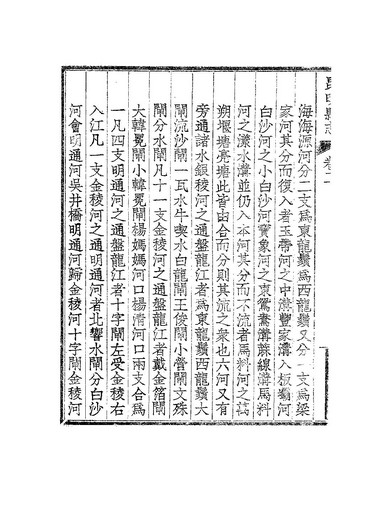 昆明縣志 卷二
海海源河分二支爲東龍鬚爲西龍鬚又分一支爲梁
家河其分而復入者玉帶河之中溝豐家溝入板壩河
白沙河之小白沙河寶象河之東鴛鴦溝蔴線溝馬料
河之濮水溝並仍入本河其分而不流者馬料河之萬
朔堰塘亮塘此皆由合而分則流之衆也六河又有
旁通諸水銀稜河之通盤龍江者爲東龍鬚西龍鬚大
閘流沙閘一瓦水牛喫水白龍閘王俊閘小營閘文殊
閘分水閘凡十一支金稜河之通盤龍江者戴金箔閘
大韓冕閘小韓冕閘楊媽媽河口楊清河口兩支合爲
一凡四支明通河之通盤龍江者十字閘左受金稜右
入江凡一支金稜河之通明通河者北響水閘分白沙
河會明通河吳井橋明通河歸金稜河十字閘金稜河